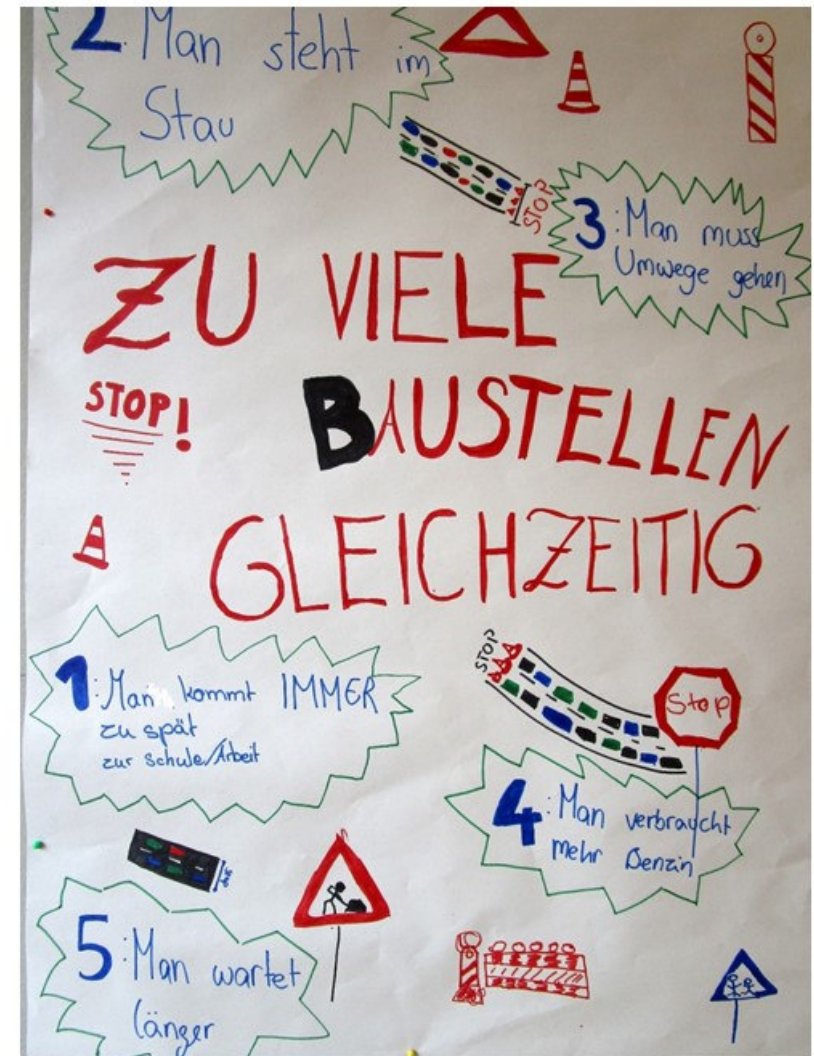 2 Man steht im
Stau
STOP
3: Man muss
Umwege gehen
ZU VIELE
STOP!
BAUSTELLEN
GLEICHZEITIG
1: Man kommt IMMER
zu spät
zur Schule/Arbeit
STOP
Stop
4: Man verbraucht
mehr Benzin
5: Man wartet
länger